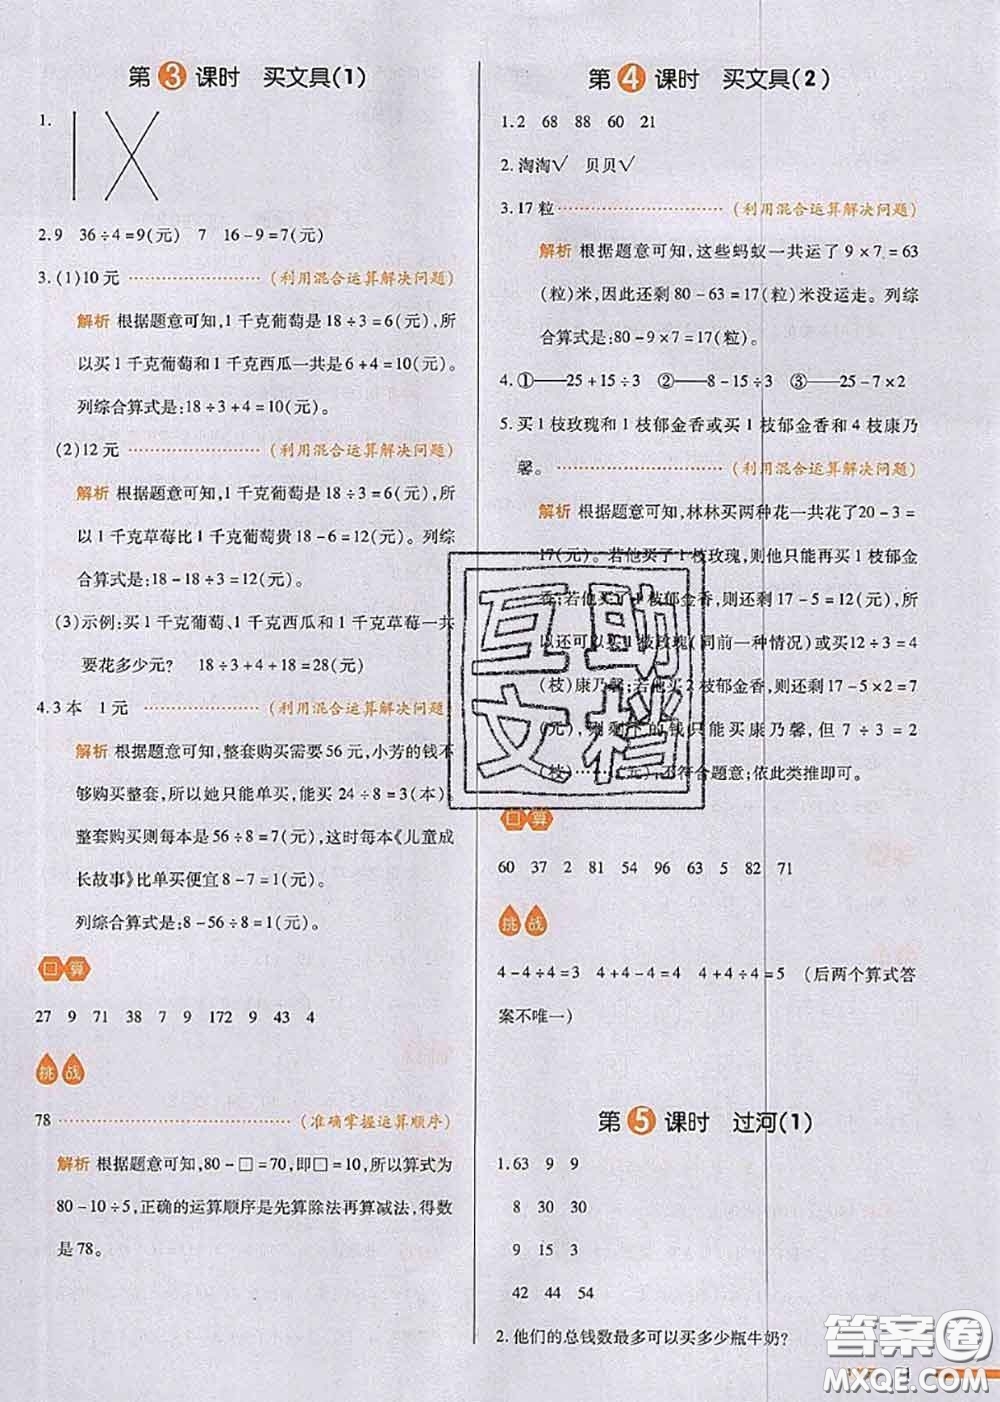 第3课时 买文具(1)
1.
2.9 36÷4=9(元) 7 16-9=7(元)
3.(1)10元 (利用混合运算解决问题)
解析 根据题意可知,1千克葡萄是18÷3=6(元),所
以买1千克葡萄和1千克西瓜一共是6+4=10(元)。
列综合算式是:18÷3+4=10(元)。
(2)12元 (利用混合运算解决问题)
解析 根据题意可知,1千克葡萄是18÷3=6(元),所
以1千克草莓比1千克葡萄贵18-6=12(元)。列综
合算式是:18-18÷3=12(元)。
(3)示例:买1千克葡萄、1千克西瓜和1千克草莓一共
要花多少元? 18÷3+4+18=28(元)
4.3本 1元 (利用混合运算解决问题)
解析 根据题意可知,整套购买需要56元,小芳的钱不
够购买整套,所以她只能单买,能买24÷8=3(本)。
整套购买则每本是56÷8=7(元),这时每本《儿童成
长故事》比单买便宜8-7=1(元)。
列综合算式是:8-56÷8=1(元)。
口算
27 9 71 38 7 9 172 9 43 4
挑战
78 (准确掌握运算顺序)
解析 根据题意可知,80-□=70,即□=10,所以算式为
80-10÷5,正确的运算顺序是先算除法再算减法,得数
是78。
第4课时 买文具(2)
1.2 68 88 60 21
2.淘淘√ 贝贝√
3.17粒 (利用混合运算解决问题)
解析 根据题意可知,这些蚂蚁一共运了9×7=63
(粒)米,因此还剩80-63=17(粒)米没运走。列综
合算式是:80-9×7=17(粒)。
4.①——25+15÷3 ②——8-15÷3 ③——25-7×2
5.买1枝玫瑰和1枝郁金香或买1枝郁金香和4枝康乃
馨。 (利用混合运算解决问题)
解析 根据题意可知,林林买两种花一共花了20-3=
17(元)。若他买了1枝玫瑰,则他只能再买1枝郁金
香;若他买了1枝郁金香,则还剩17-5=12(元),所
以还可以买1枝玫瑰(同前一种情况)或买12÷3=4
(枝)康乃馨;若他买2枝郁金香,则还剩17-5×2=7
(元),则剩下的钱只能买康乃馨,但7÷3=2
(枝)……(元),不符合题意;依此类推即可。
互助
文档
口算
60 37 2 81 54 96 63 5 82 71
挑战
4-4÷4=3 4+4-4=4 4+4÷4=5 (后两个算式答
案不唯一)
第5课时 过河(1)
1.63 9 9
8 30 30
9 15 3
42 44 54
2.他们的总钱数最多可以买多少瓶牛奶?
答案圈
MXQE.COM